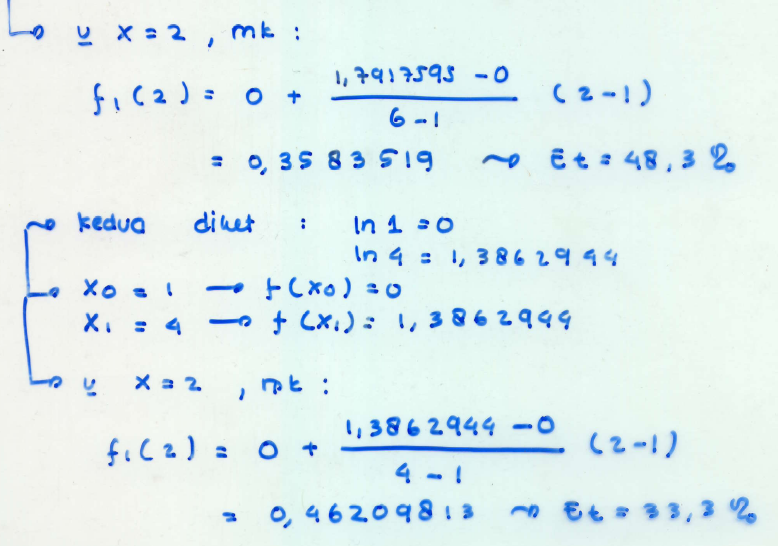 u x = 2 , mk :
f1(2) = 0 + (1,7917595 - 0) / (6 - 1) (2-1)
= 0,3583519 ~ Et = 48,3 %
kedua diket : ln 1 = 0
ln 4 = 1,3862944
x0 = 1 → f(x0) = 0
x1 = 4 → f(x1) = 1,3862944
u x = 2 , mk :
f1(2) = 0 + (1,3862944 - 0) / (4 - 1) (2-1)
= 0,46209813 ~ Et = 33,3 %